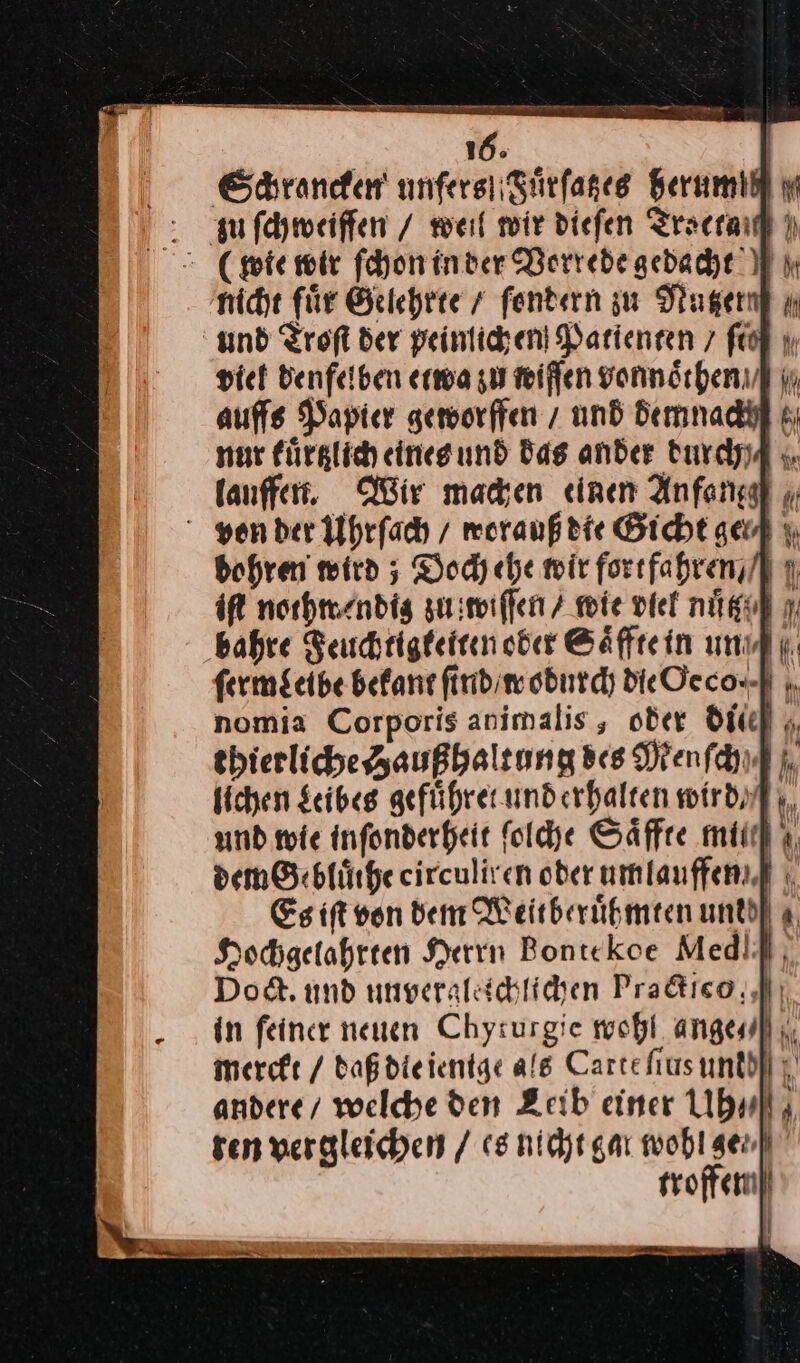 16.
Schrancken unsers Fürsatzes herum
zu schweiffen / weil wir diesen Tractat
( wie wir schon in der Vorrede gedacht )
nicht für Gelehrte / sondern zu Nutzen
und Trost der peinlichen Patienten / so
viel denselben etwa zu wissen vonnöthen /
auffs Papier geworffen / und demnach
nur kürtzlich eines und das ander durch-
lauffen. Wir machen einen Anfang
von der Uhrsach / worauß die Gicht ge-
bohren wird ; Doch ehe wir fortfahren /
ist nothwendig zu wissen / wie viel nütz-
bahre Feuchtigkeiten oder Säffte in un-
serm Leibe bekant sind / wodurch die Oeco-
nomia Corporis animalis, oder die
thierliche Haußhaltung des Mensch-
lichen Leibes geführet und erhalten wird /
und wie insonderheit solche Säffte mit
dem Geblüthe circuliren oder umlauffen.
Es ist von dem Weitberühmten und
Hochgelahrten Herrn Bontekoe Med.
Doct. und unvergleichlichen Practico,
in seiner neuen Chyrurgie wohl ange-
merckt / daß die ienige als Cartesius und
andere / welche den Leib einer Uh-
ren vergleichen / es nicht gar wohl ge-
troffen